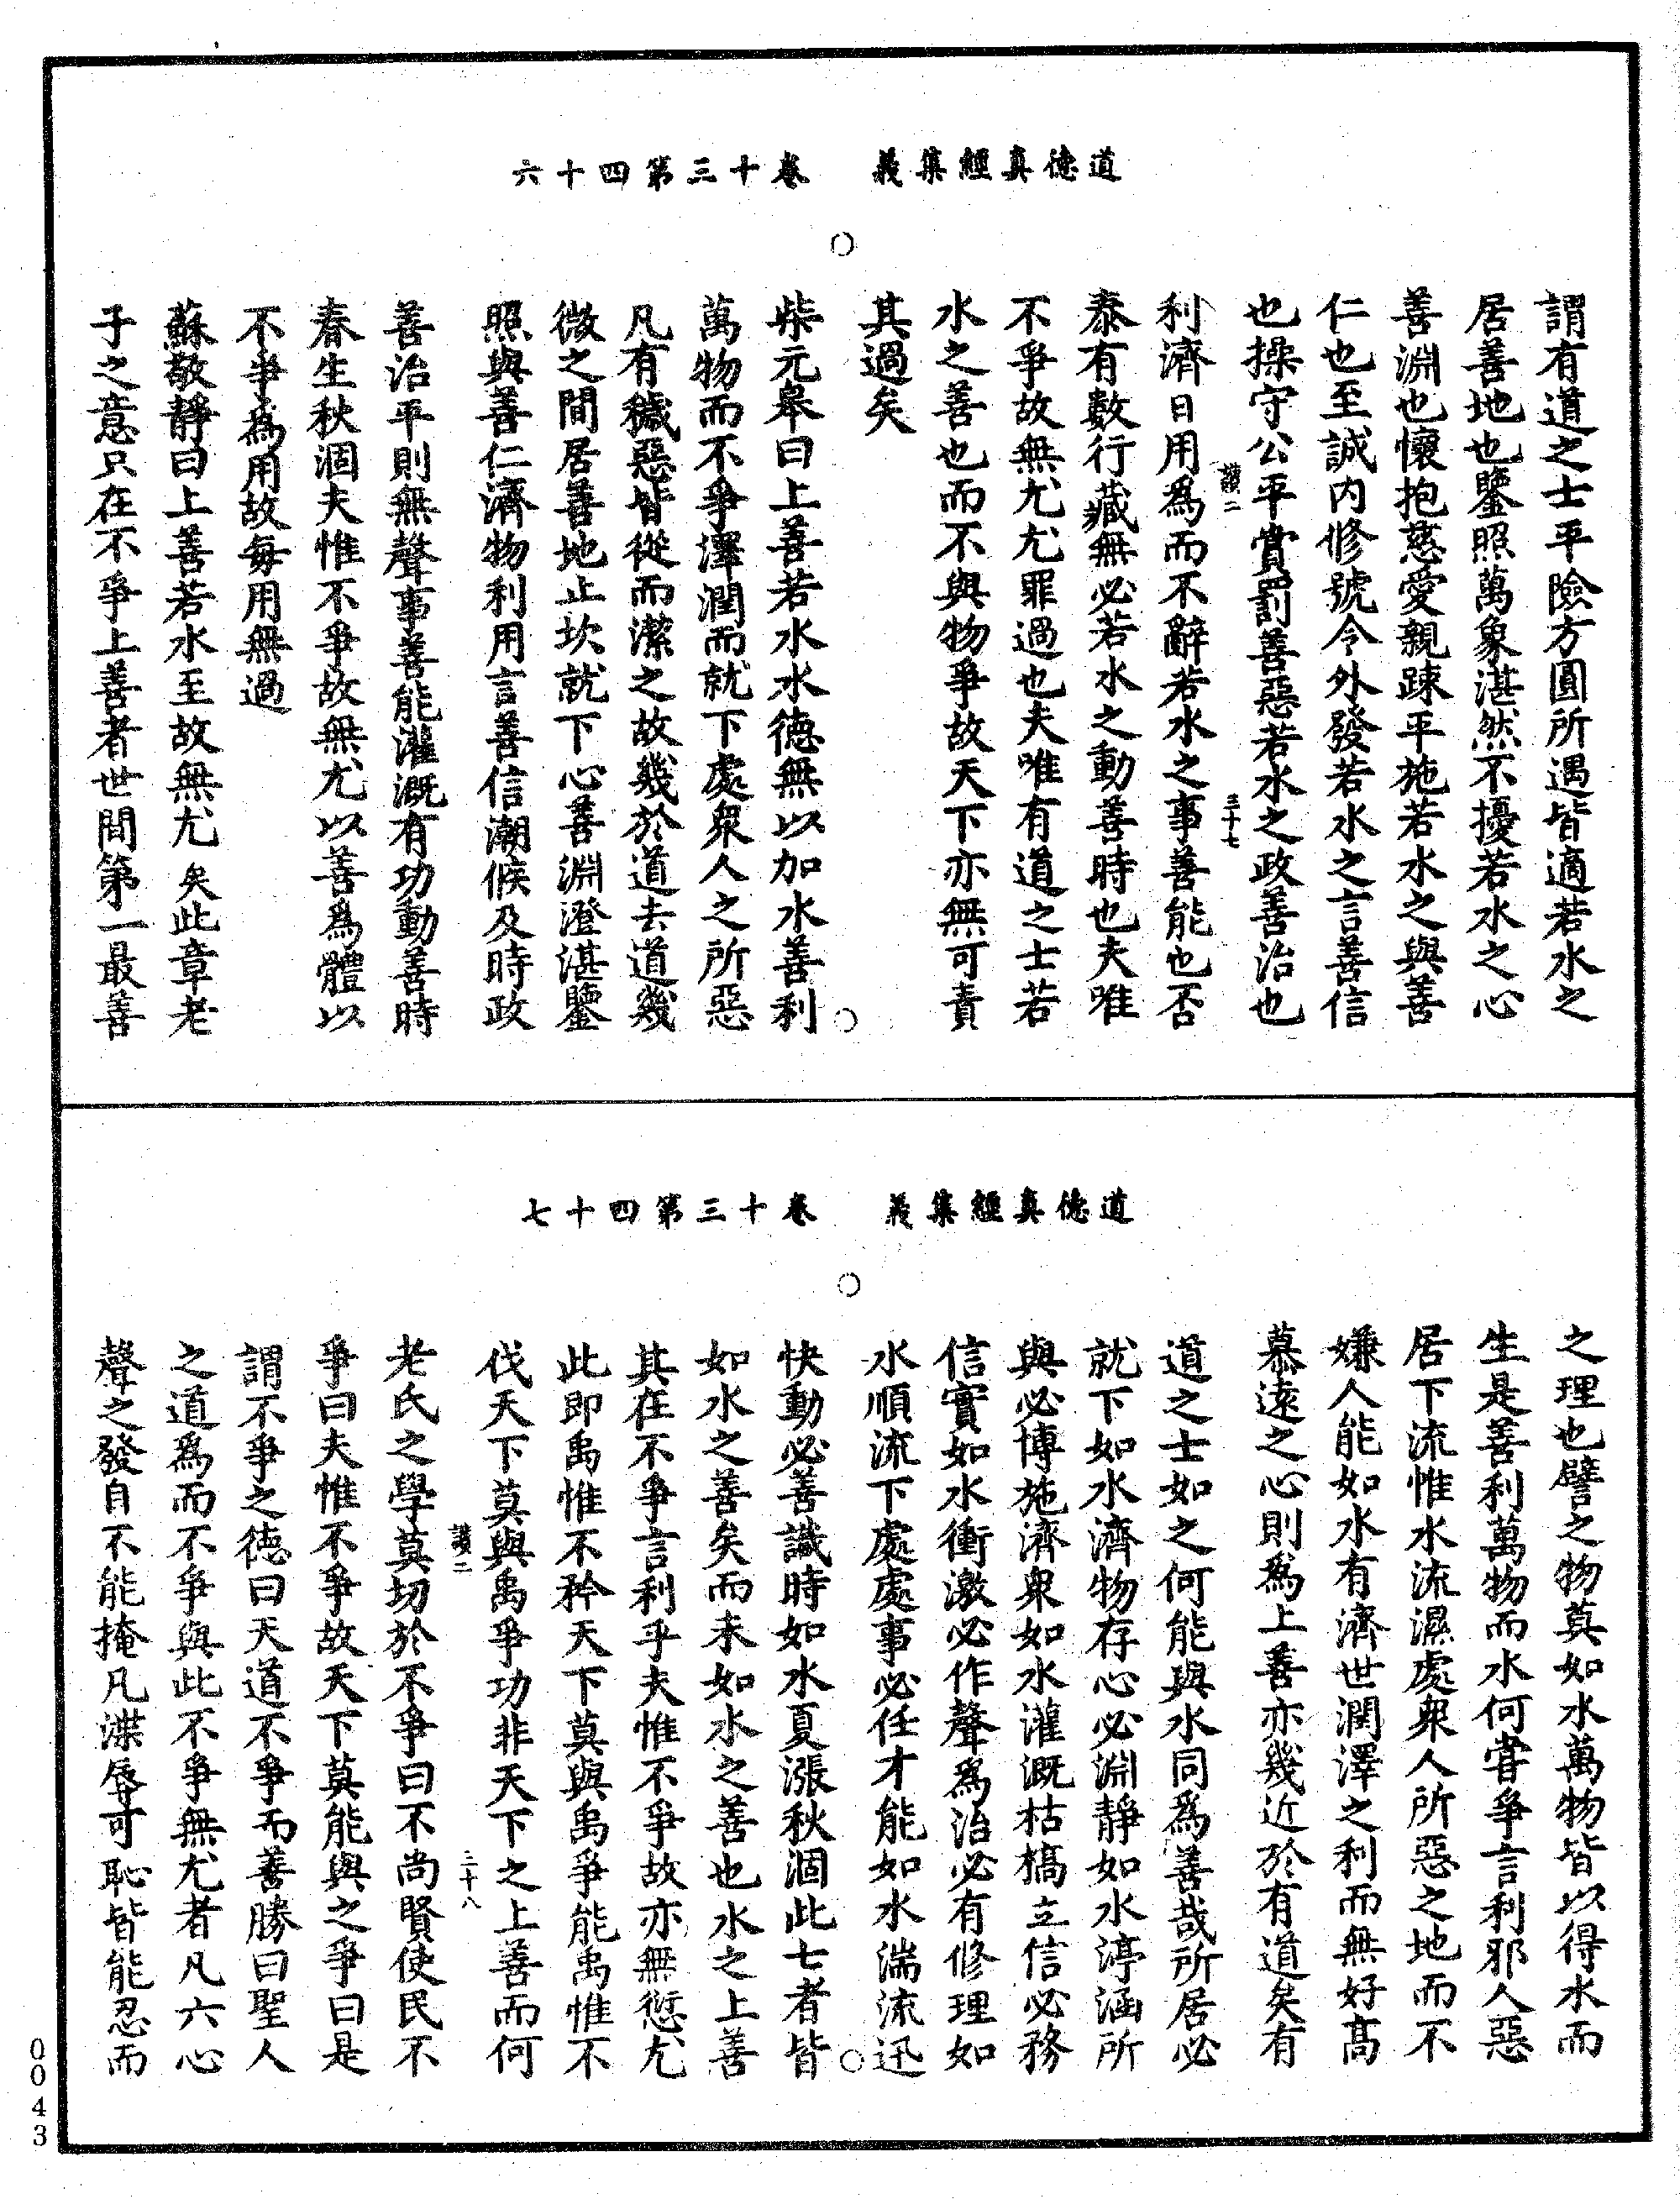 道德真經集義　卷十三第四十六
謂有道之士平險方圓所遇皆適若水之
居善地也鑒照萬象湛然不擾若水之心
善淵也懷抱慈愛親踈平施若水之與善
仁也至誠內修號令外發若水之言善信
也操守公平賞罰善惡若水之政善治也
讃二　三十七
利濟日用爲而不辭若水之事善能也否
泰有數行藏無必若水之動善時也夫唯
不爭故無尤尤罪過也夫唯有道之士若
水之善也而不與物爭故天下亦無可責
其過矣
柴元皋曰上善若水水德無以加水善利
萬物而不爭澤潤而就下處衆人之所惡
凡有穢惡皆從而潔之故幾於道去道幾
微之間居善地止坎就下心善淵澄湛鑒
照與善仁濟物利用言善信潮候及時政
善治平則無聲事善能灌溉有功動善時
春生秋涸夫惟不爭故無尤以善爲體以
不爭爲用故每用無過
蘇敬靜曰上善若水至故無尤矣此章老
子之意只在不爭上善者世間第一最善
道德真經集義　卷十三第四十七
之理也譬之物莫如水萬物皆以得水而
生是善利萬物而水何甞爭言利邪人惡
居下流惟水流濕處衆人所惡之地而不
嫌人能如水有濟世潤澤之利而無好高
慕遠之心則爲上善亦幾近於有道矣有
道之士如之何能與水同爲善哉所居必
就下如水濟物存心必淵靜如水渟涵所
與必博施濟衆如水灌溉枯槁立信必務
信實如水衝激必作聲爲治必有修理如
水順流下處處事必任才能如水湍流迅
快動必善識時如水夏漲秋涸此七者皆
如水之善矣而未如水之善也水之上善
其在不爭言利乎夫惟不爭故亦無愆尤
此即禹惟不矜天下莫與禹爭能禹惟不
伐天下莫與禹爭功非天下之上善而何
讃二　三十八
老氏之學莫切於不爭曰不尚賢使民不
爭曰夫惟不爭故天下莫能與之爭曰是
謂不爭之德曰天道不爭而善勝曰聖人
之道爲而不爭與此不爭無尤者凡六心
聲之發自不能掩凡渫辱可恥皆能忍而
0043